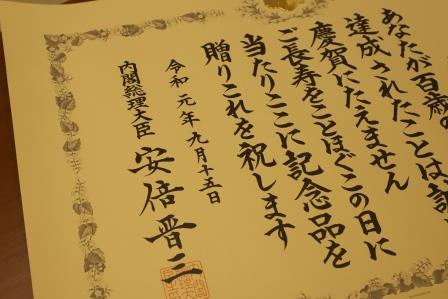 あなたが百歳の
達成されたことは誠
慶賀にたえません
ご長寿をことほぐこの日に
当たりここに記念品を
贈りこれを祝します
令和元年九月十五日
内閣総理大臣 安倍晋三